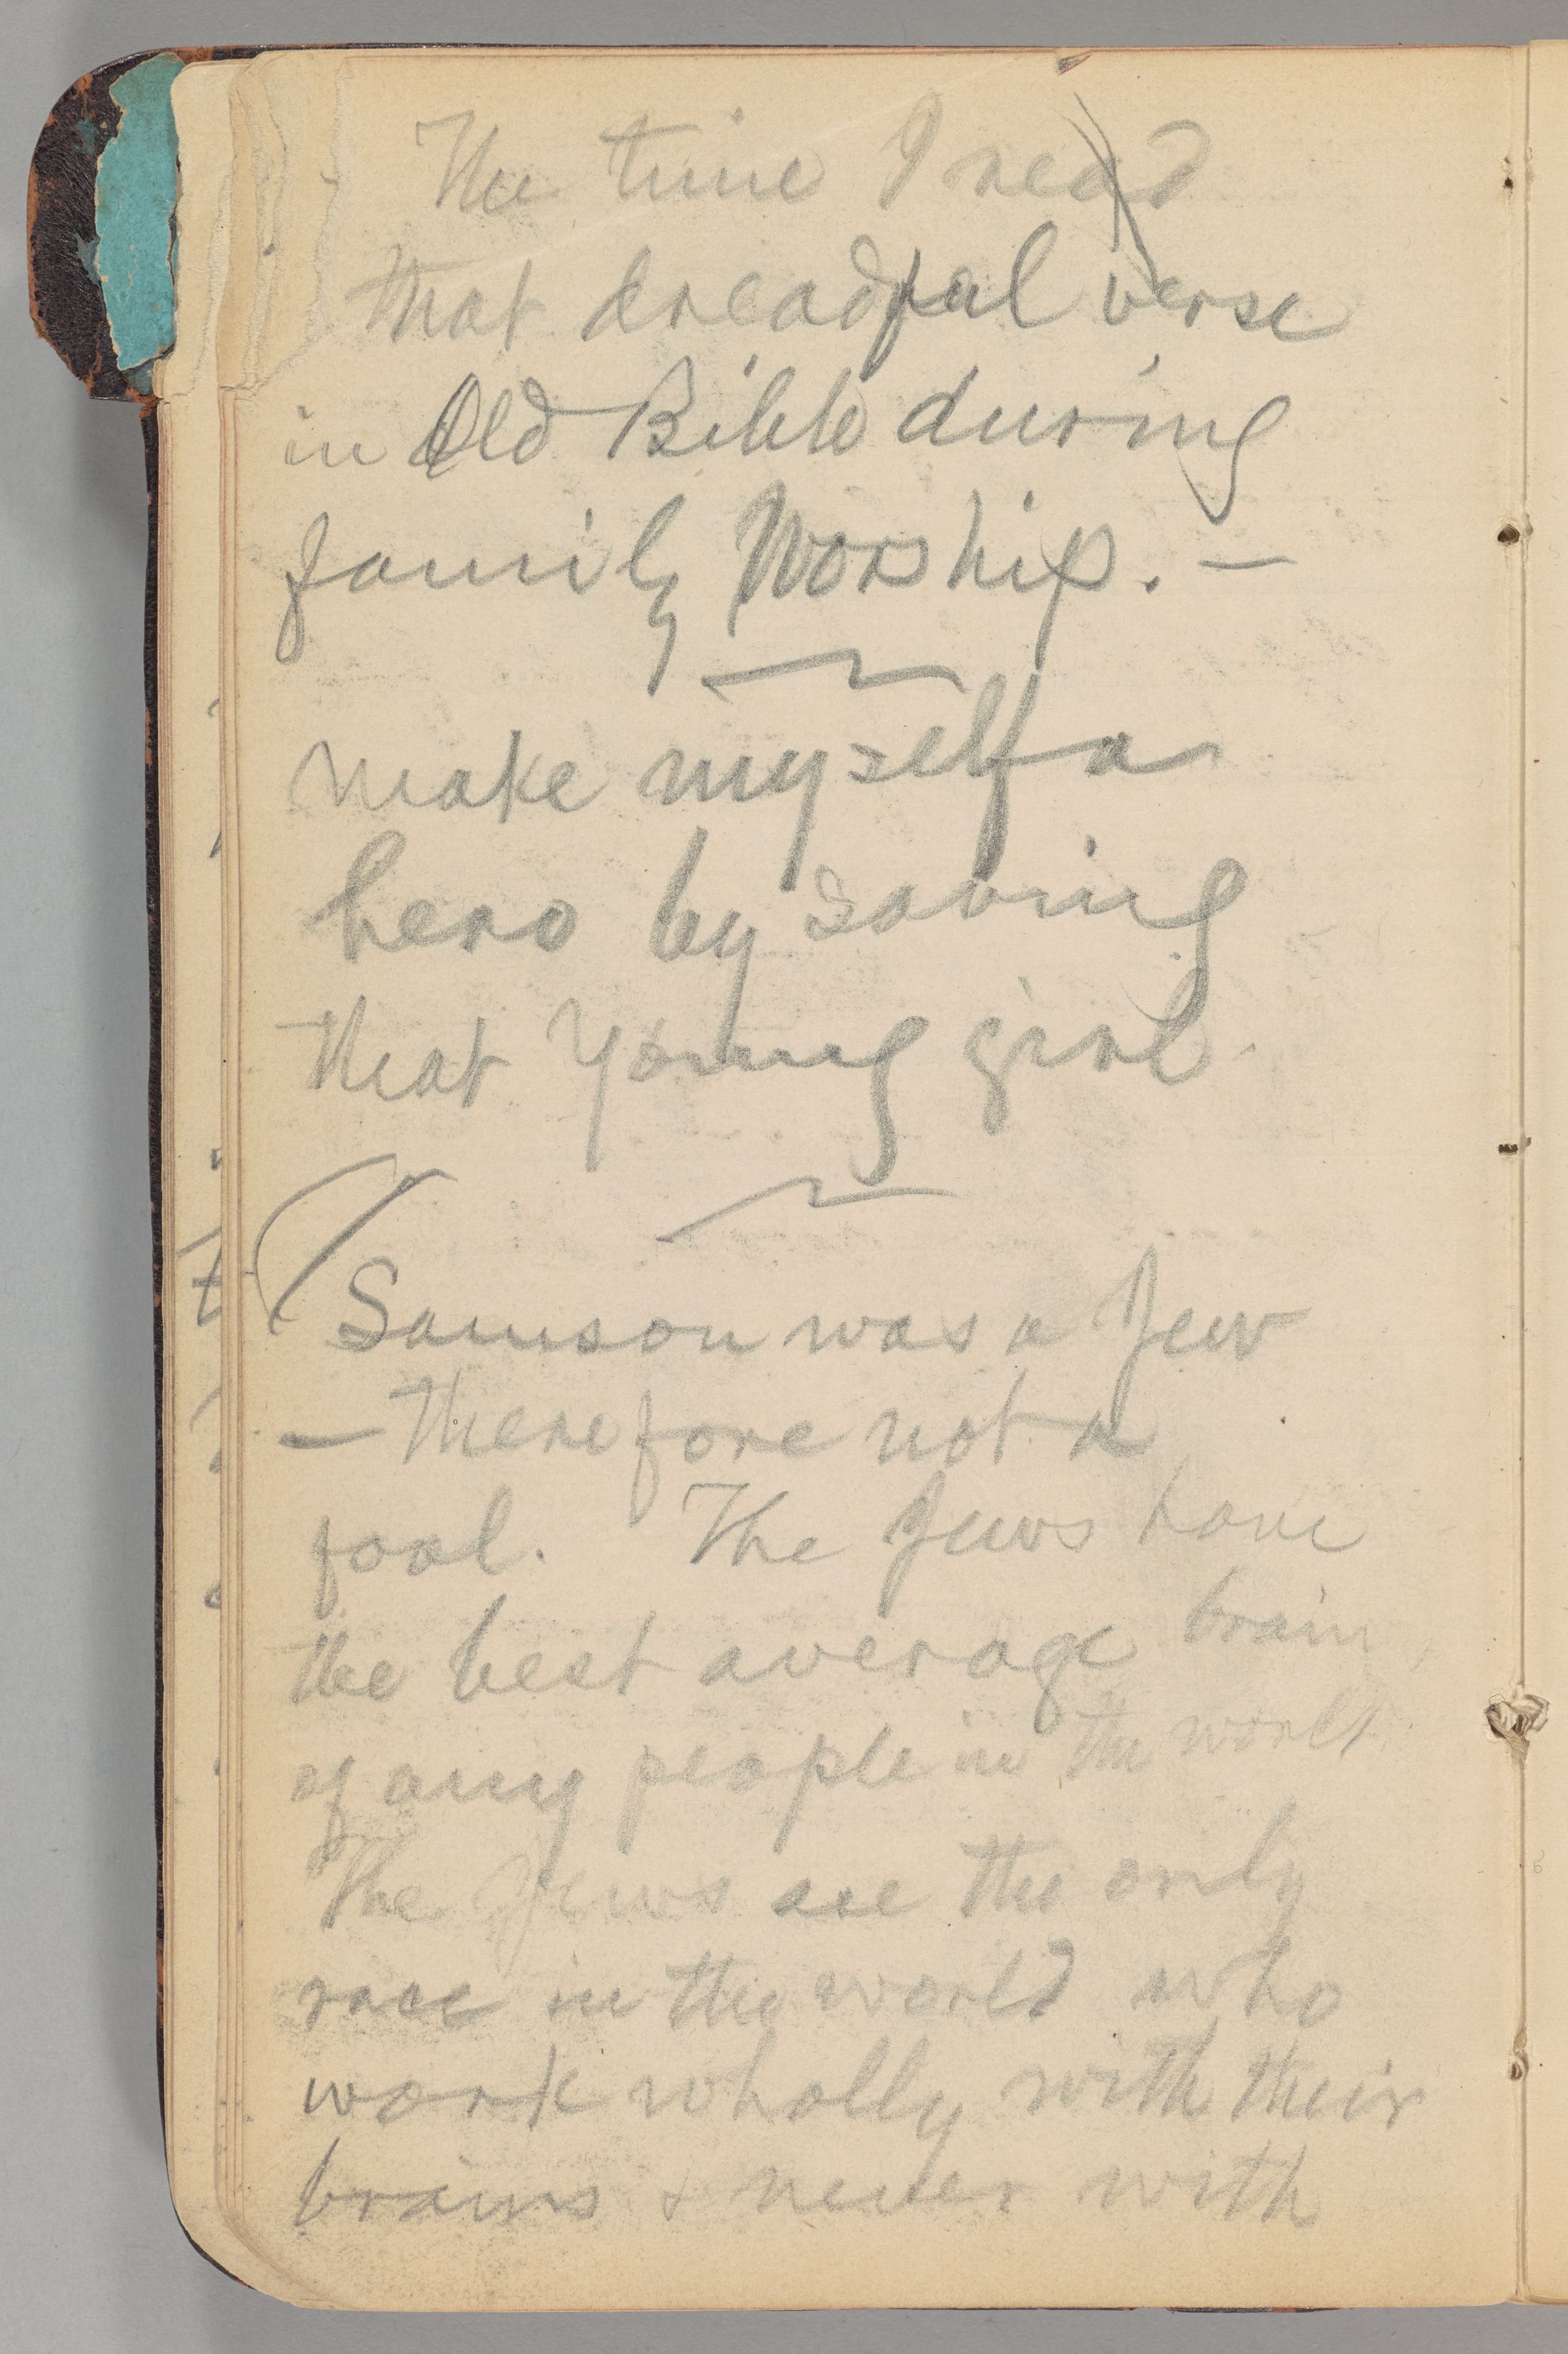 The time I read
that dreadful verse
in Old Bible during
family Worship. —
make myself a
hero by saving
that young girl.
Samson was a Jew
— therefore not a
fool. The Jews have
the best average brain
of any people in the world
The Jews are the only
race in the world who
work wholly with their
brains & never with